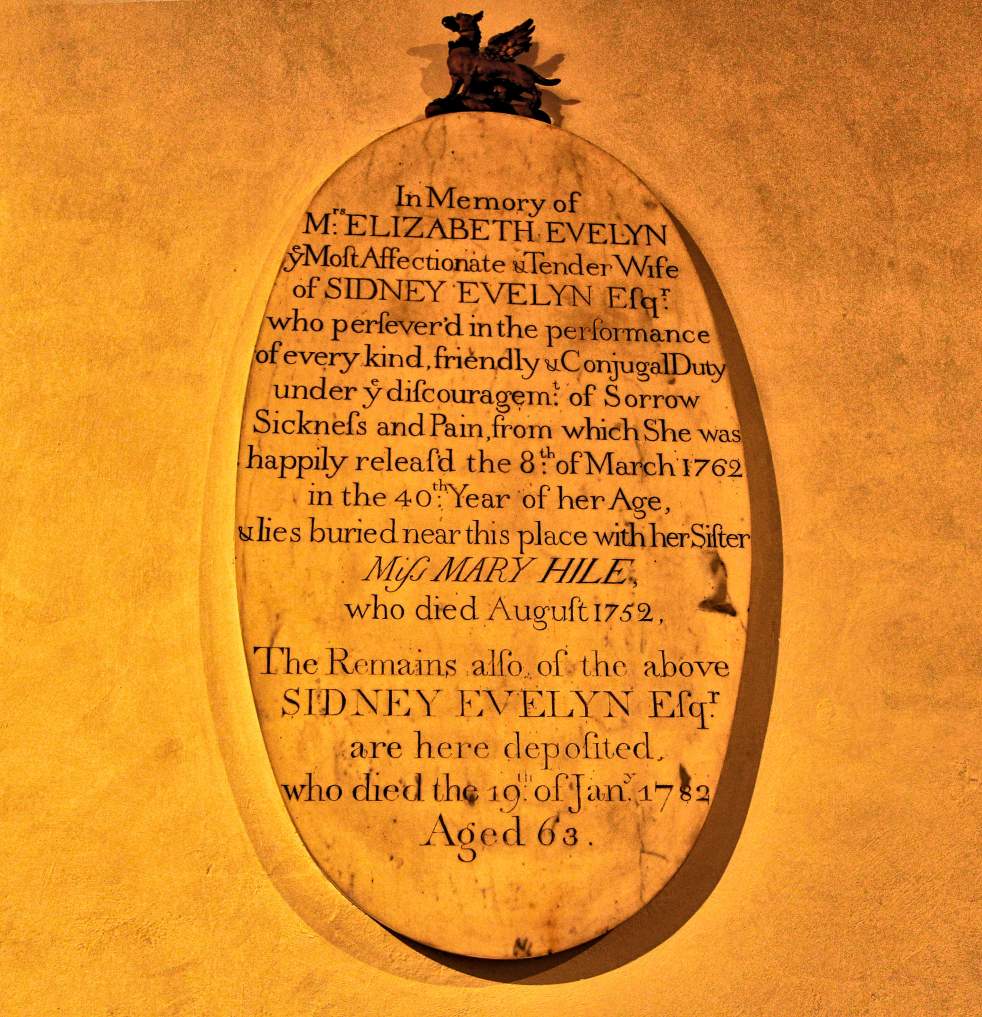 In Memory of
Mrs. ELIZABETH EVELYN
ye Moſt Affectionate & Tender Wife
of SIDNEY EVELYN Eſqr.
who perſever'd in the performance
of every kind, friendly & Conjugal Duty
under ye diſcouragemt. of Sorrow
Sickneſs and Pain, from which She was
happily releaſd the 8th. of March 1762
in the 40th. Year of her Age,
& lies buried near this place with her Siſter
Miſs MARY HILE,
who died Auguſt 1752,
The Remains alſo, of the above
SIDNEY EVELYN Eſqr.
are here depoſited,
who died the 19th. of Jany. 1782
Aged 63.